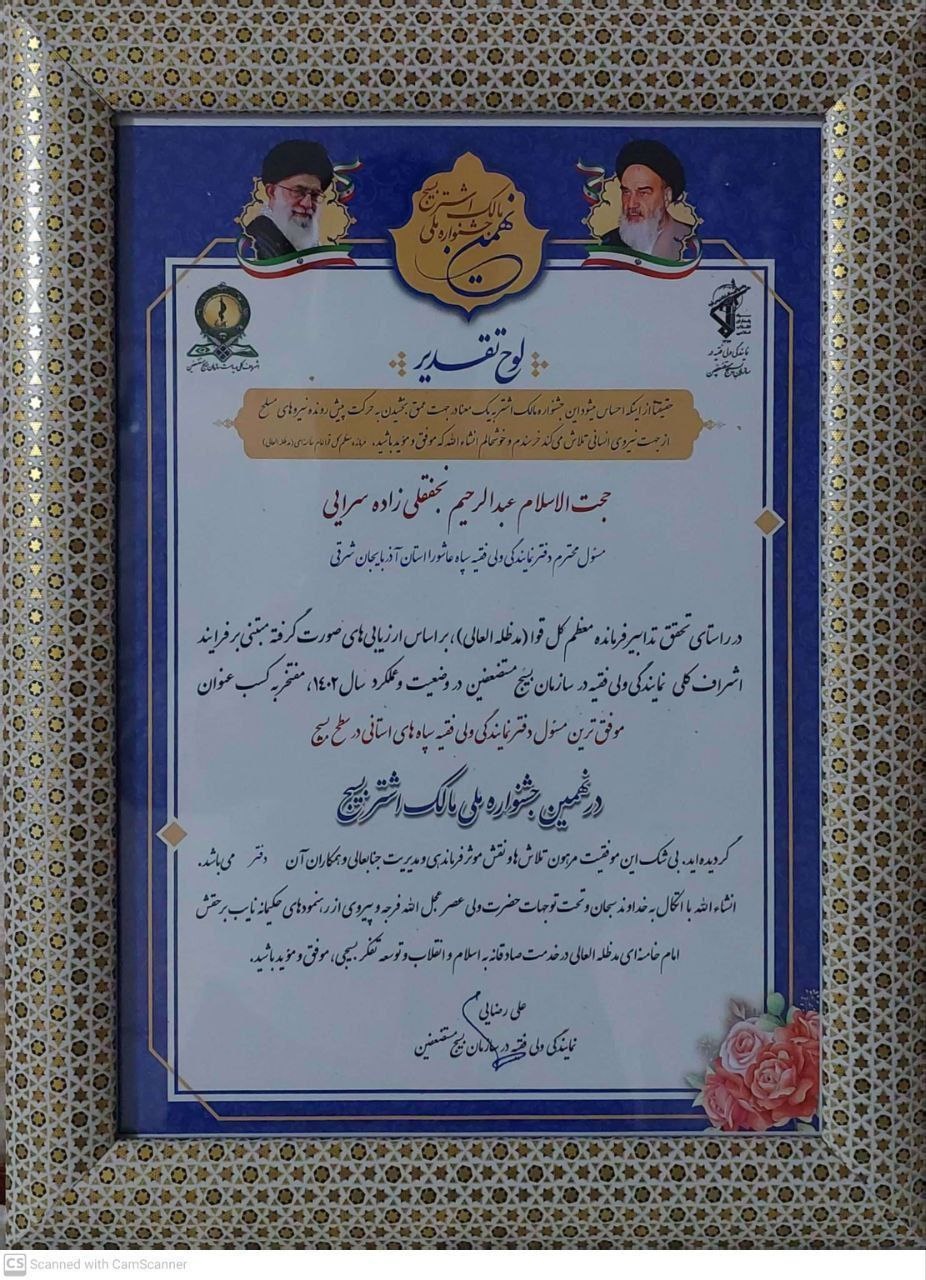 نهمین
جشنواره ملی
مالک اشتر بسیج
نمایندگی ولی فقیه در
سازمان بسیج مستضعفین
لوح تقدیر
حقیقتاً از اینکه احساس میشود این جشنواره مالک اشتر به یک معنا در جهت عمق بخشیدن به حرکت پیش رونده نیروهای مسلح
از جهت نیروی انسانی تلاش می‌کند خرسندم و خوشحالم انشاء الله که موفق و مؤید باشید. فرمانده معظم کل قوا امام خامنه ای (مدظله العالی)
حجت الاسلام عبدالرحیم نجفقلی زاده سرایی
مسئول محترم دفتر نمایندگی ولی فقیه سپاه عاشورا استان آذربایجان شرقی
در راستای تحقق تدابیر فرمانده معظم کل قوا (مدظله العالی)، بر اساس ارزیابی‌های صورت گرفته مبتنی بر فرایند
اشراف کلی نمایندگی ولی فقیه در سازمان بسیج مستضعفین در وضعیت و عملکرد سال ۱۴۰۲، مفتخر به کسب عنوان
موفق ترین مسئول دفتر نمایندگی ولی فقیه سپاه های استانی در سطح بسیج
در نهمین جشنواره ملی مالک اشتر بسیج
گردیده‌اید. بی شک این موفقیت مرهون تلاش‌ها و نقش موثر فرماندهی و مدیریت جنابعالی و همکاران آن دفتر می‌باشد.
انشاء الله با اتکال به خداوند سبحان و تحت توجهات حضرت ولی عصر عجل الله فرجه و پیروی از رهنمودهای حکیمانه نایب برحقش
امام خامنه‌ای مدظله العالی در خدمت صادقانه به اسلام و انقلاب و توسعه تفکر بسیجی، موفق و مؤید باشید.
علی رضایی
نمایندگی ولی فقیه در سازمان بسیج مستضعفین
CS Scanned with CamScanner